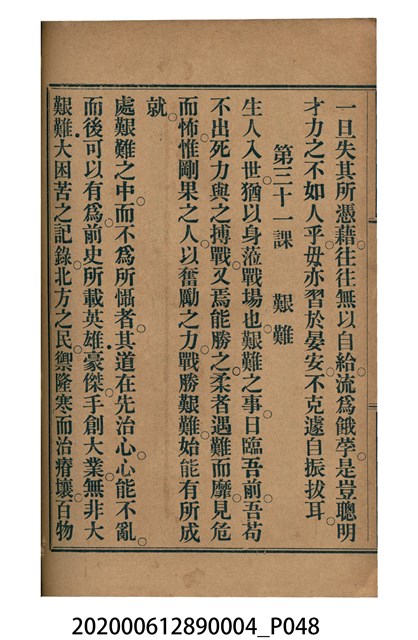 一旦失其所憑藉。往往無以自給。流爲餓莩。是豈聰明
才力之不如人乎。毋亦習於晏安。不克遽自振拔耳。
第三十一課　艱難
生人入世。猶以身涖戰場也。艱難之事。日臨吾前。吾苟
不出死力與之搏戰。又焉能勝之。柔者遇難而靡。見危
而怖。惟剛果之人。以奮勵之力。戰勝艱難。始能有所成
就。
處艱難之中。而不爲所懾者。其道在先治心。心能不亂。
而後可以有爲。前史所載英雄豪傑。手創大業。無非大
艱難大困苦之記錄。北方之民。禦隆寒而治瘠壤。百物
202000612890004_P048